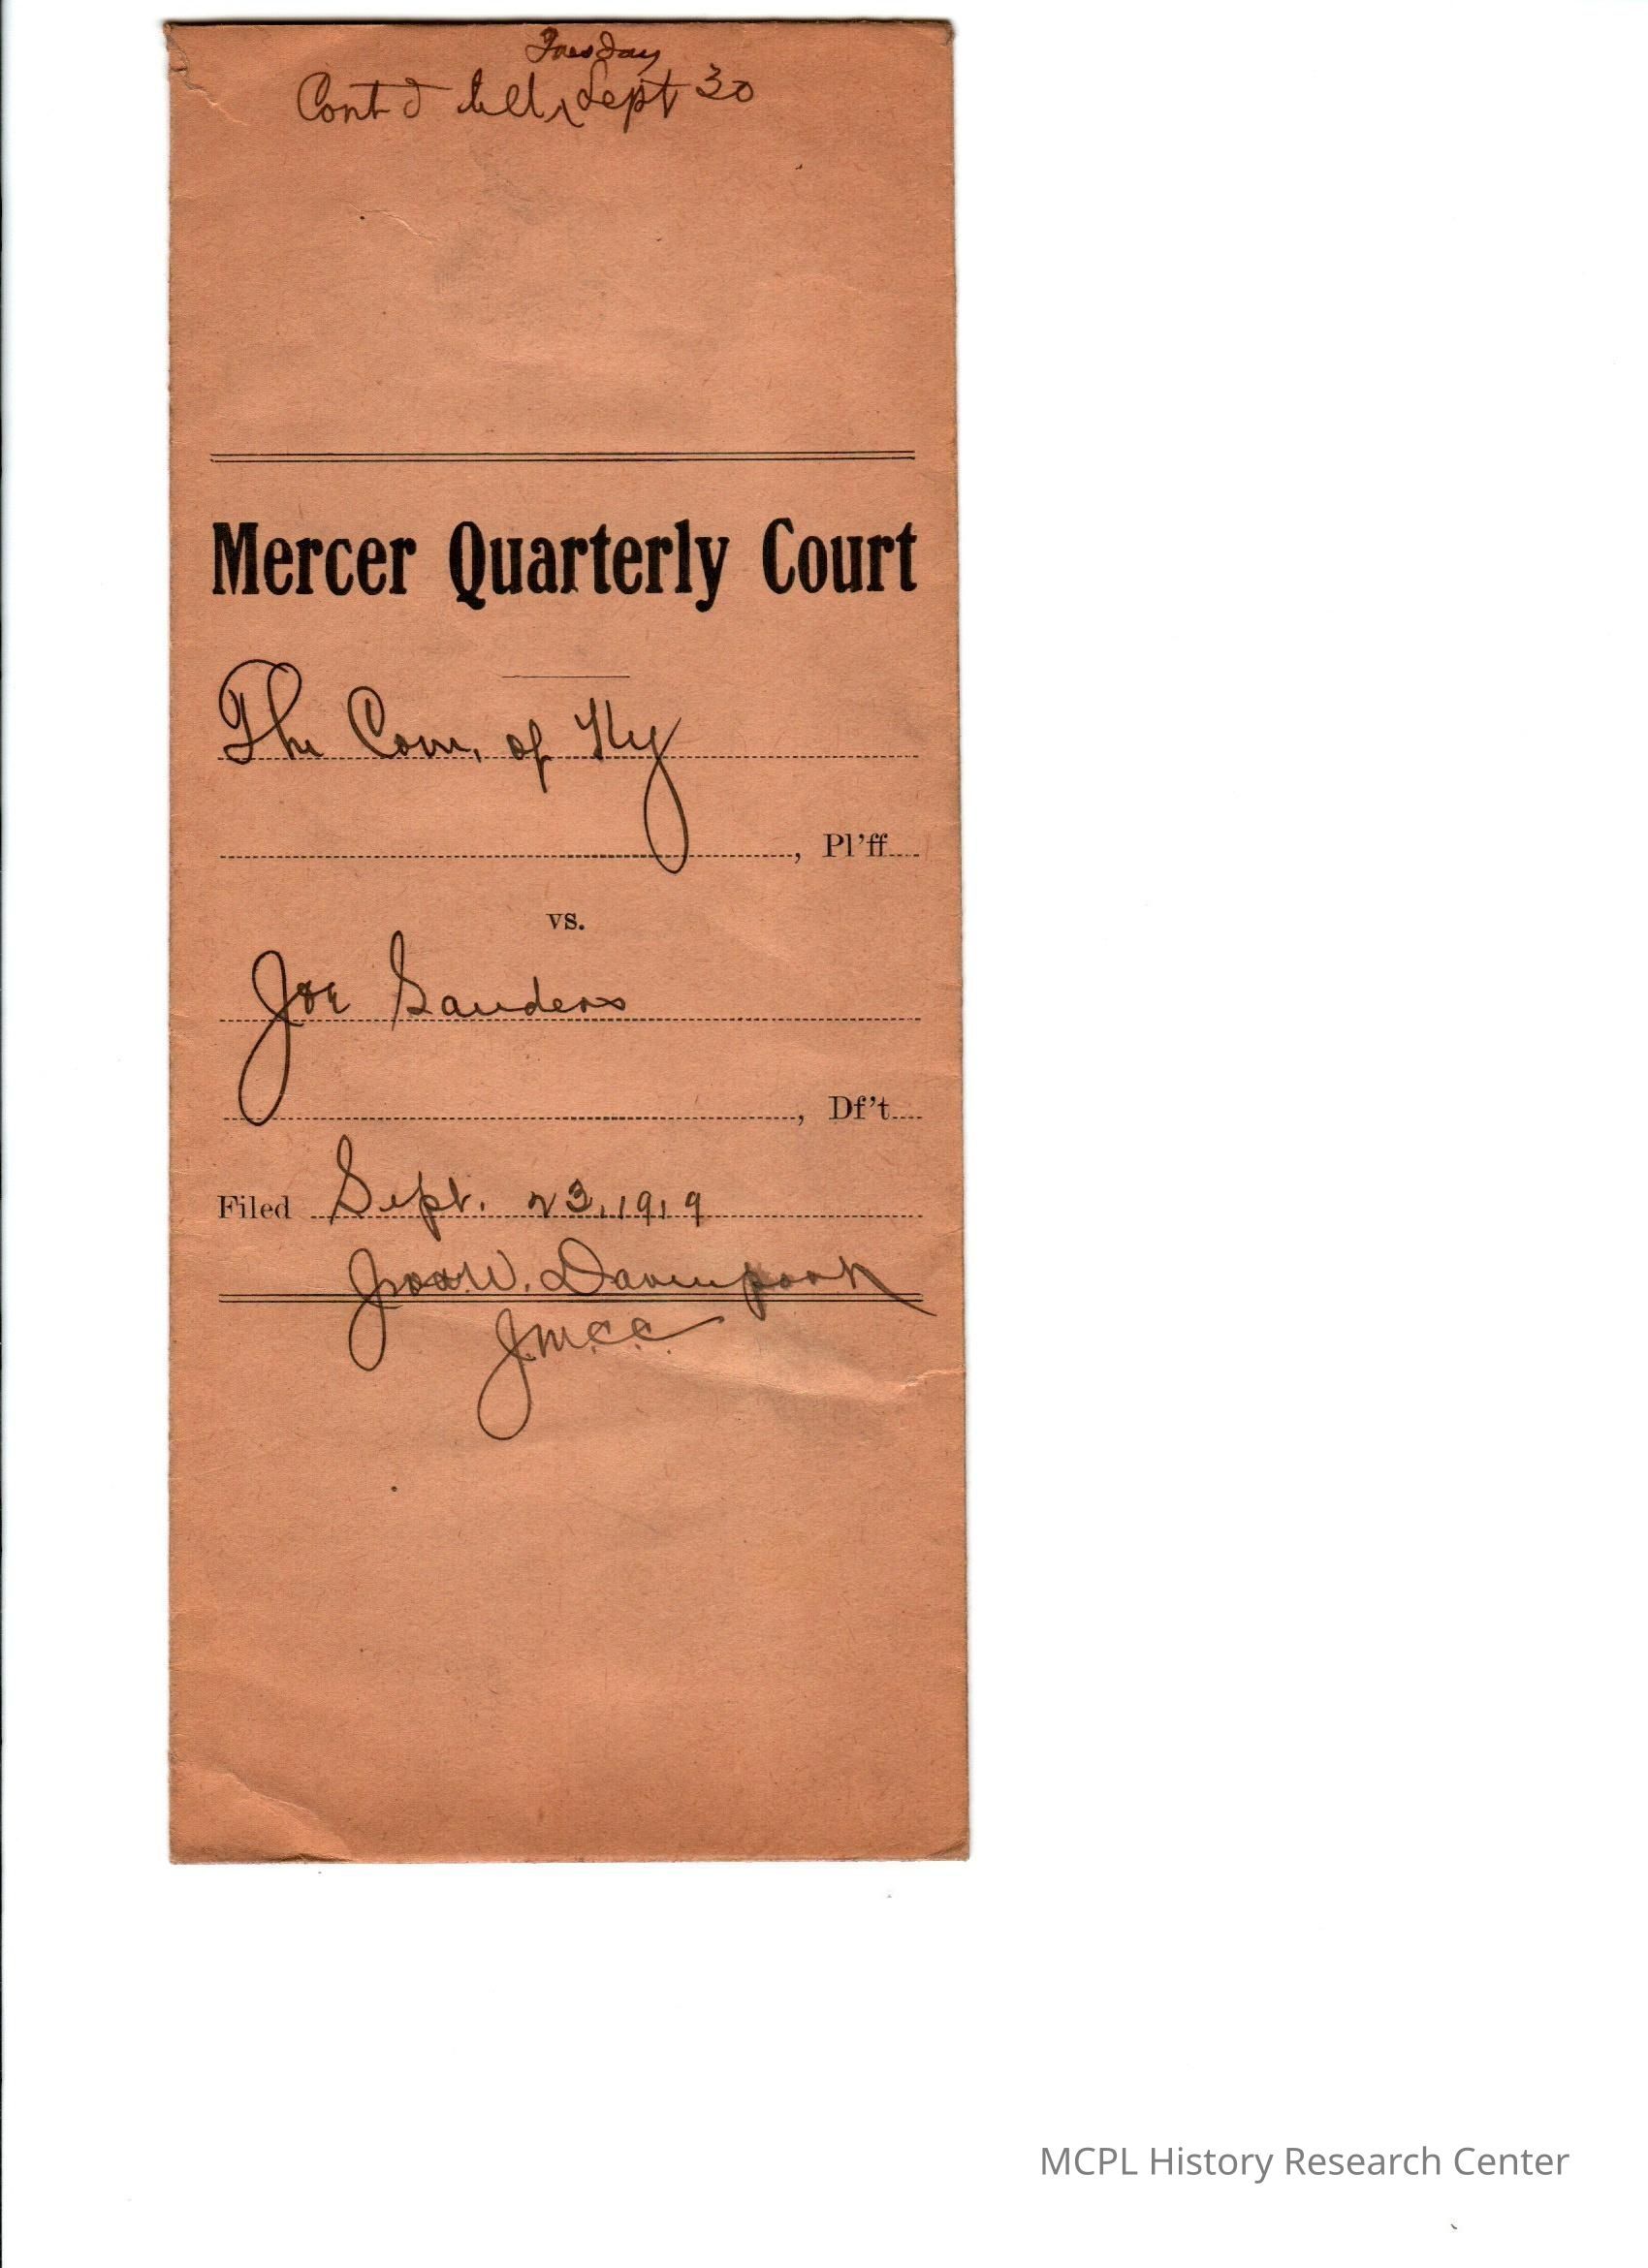 Tuesday
Cont'd till ^ Sept 30
Mercer Quarterly Court
The Com. of Ky
, Pl'ff
vs.
Joe Sanders
, Df't
Filed Sept. 23, 1919
W. Davenport
J.M.C.C.
MCPL History Research Center